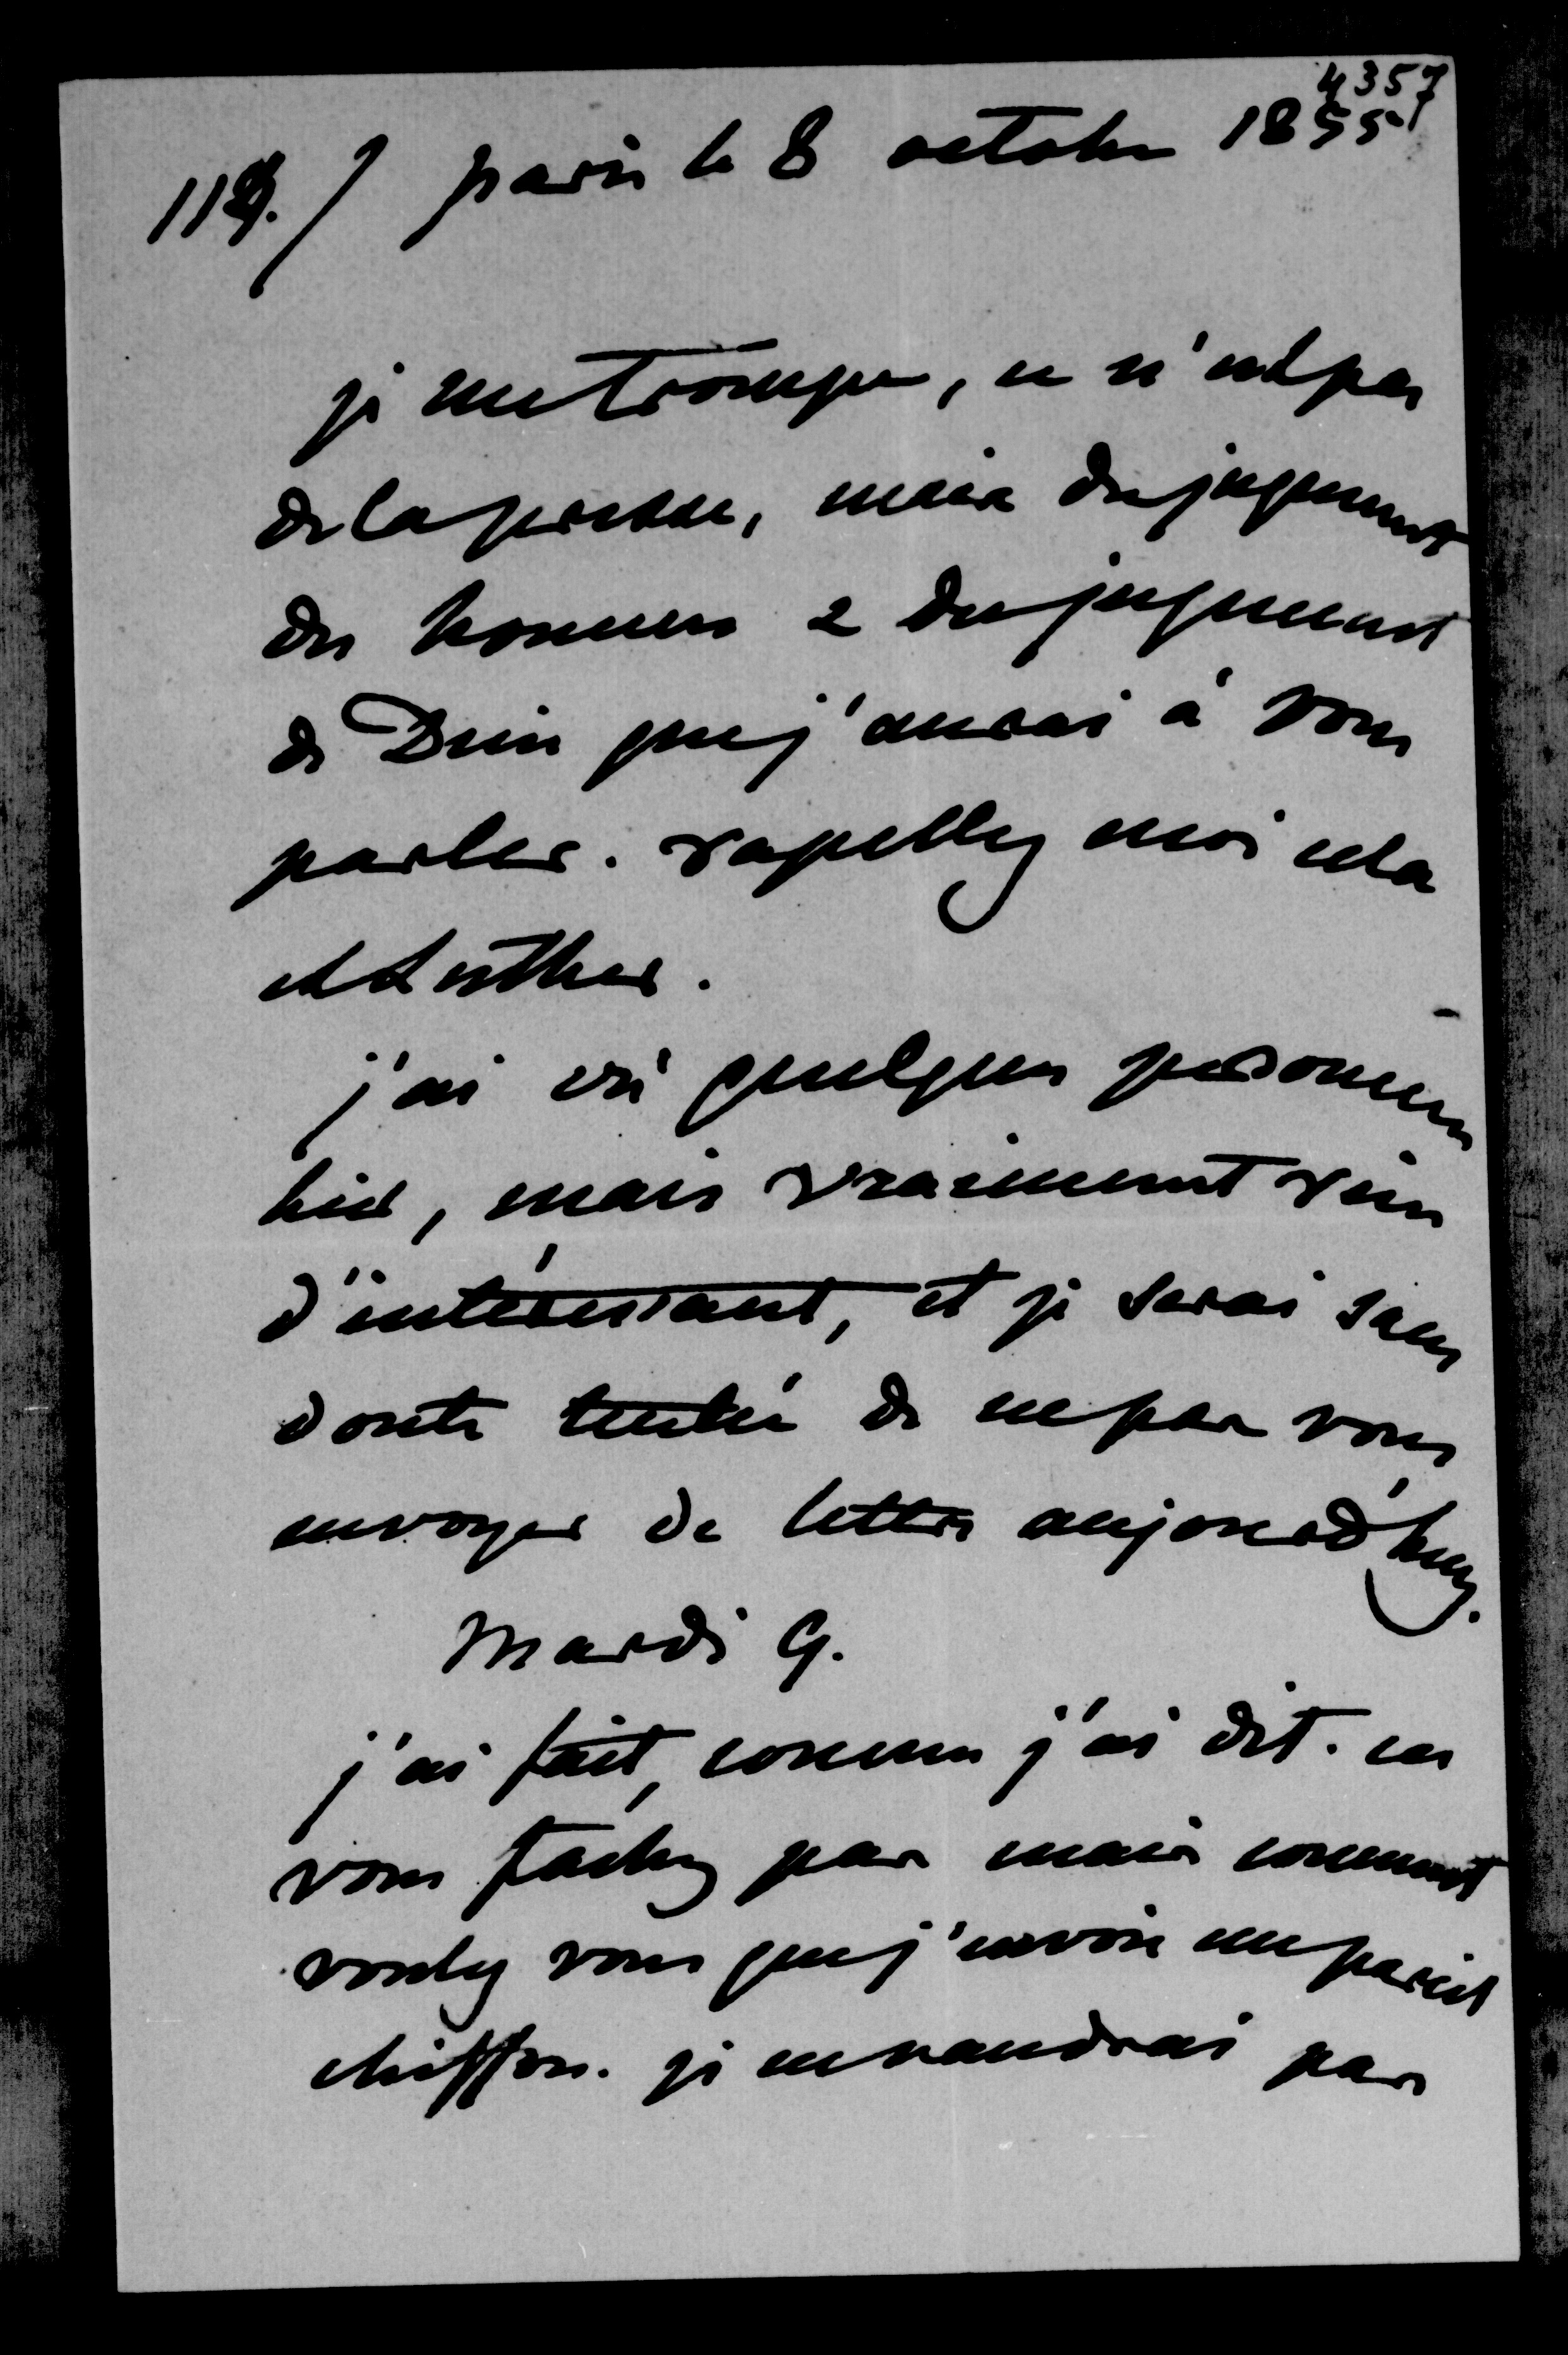 4357
119./ paris le 8 octobre 1855
je me trompe, ce n'est pas
de la presse, mais du jugement
des hommes & du jugement
de Dieu que j'aurai à vous
parler. rapellez moi cela
et Luther.
j'ai vu quelques personnes
hier, mais vraiment rien
d'intéressant, et je serai sans
doute tentée de ne pas vous
envoyer de lettre aujourd'huy.
Mardi 9.
j'ai fait, comme j'ai dit. ne
vous fachez pas mais comment
voulez vous que j'envoie un pareil
chiffon. je ne vaudrai pas